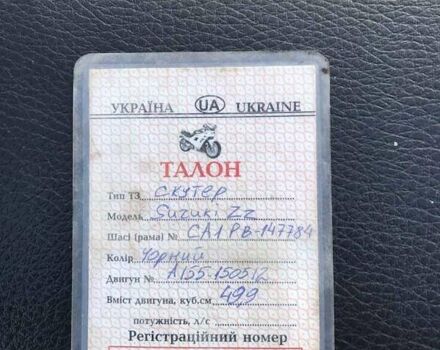 УКРАЇНА UA UKRAINE
ТАЛОН
Тип ТЗ скутер
Модель Suzuki Zz
Шасі (рама) № CA1PB-147784
Колір Чорний
Двигун № A155-150512
Вміст двигуна, куб.см 49,9
потужність, л/с
Регістраційний номер